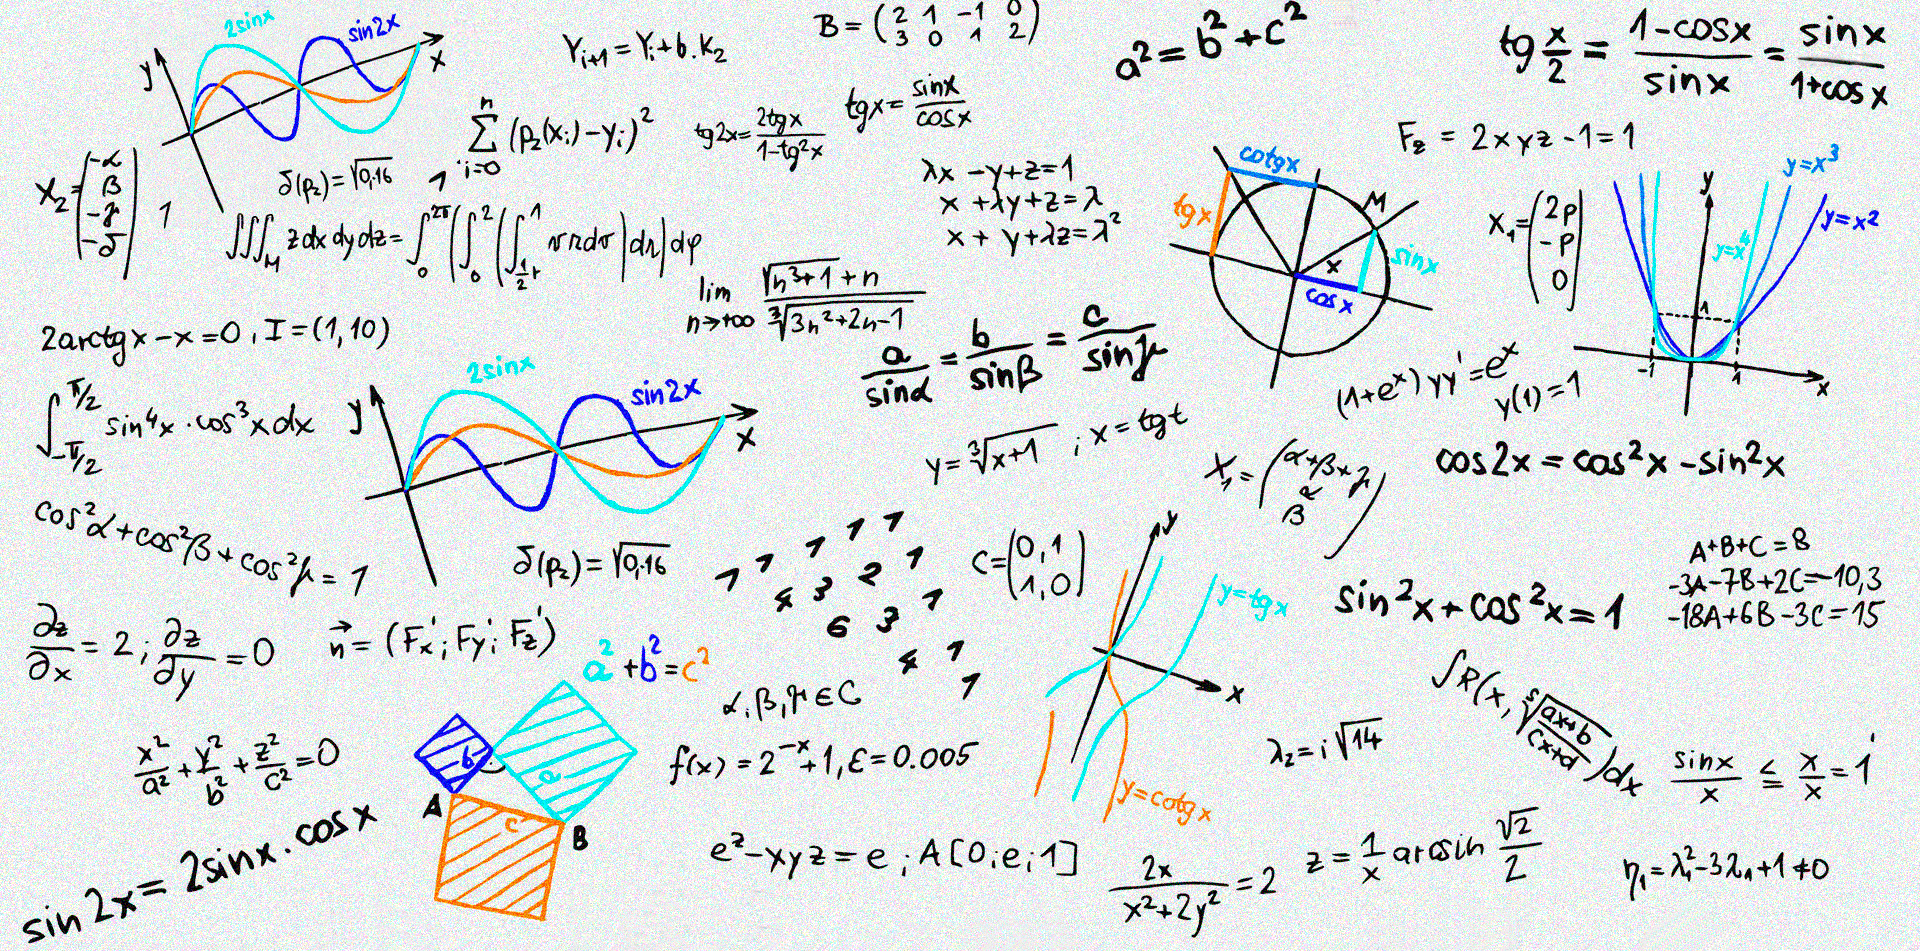 2sinx
sin2x
y
x
Yᵢ₊₁ = Yᵢ + b.K₂
B = (2 1 -1 0
3 0 1 2)
a² = b² + c²
tg x/2 = (1-cosx)/sinx = sinx/(1+cosx)
X₂ = (-α
β
-γ
-δ) 1
δ(p₂) = √0,16 1
∑ i=0 n (p₂(xᵢ) - yᵢ)²
tg2x = 2tgx/(1-tg²x)
tgx = sinx/cosx
F_z = 2xyz - 1 = 1
λx - y + z = 1
x + λy + z = λ
x + y + λz = λ²
cotgx
tgx
M
sinx
x
cosx
X₁ = (2p
-p
0)
y
y=x³
y=x²
y=x⁴
1
-1
1
x
∭_M z dx dy dz = ∫₀^2π (∫₀² (∫_½r¹ vr dv) dr) dφ
lim n→+∞ (√(n³+1) + n)/∛(3n²+2n-1)
2arctgx - x = 0, I = (1,10)
a/sinα = b/sinβ = c/sinγ
(1+eˣ)yy' = eˣ
y(1) = 1
∫_-π/2^π/2 sin⁴x · cos³x dx
2sinx
sin2x
y
x
y = ∛(x+1) ; x = tgt
X₁ = (α+β+γ
α
β)
cos2x = cos²x - sin²x
cos²α + cos²β + cos²γ = 1
δ(p₂) = √0,16
1 1 1 1 1
4 3 2 1
6 3 1
4 1
1
C = (0,1
1,0)
y
y=tgx
x
y=cotgx
sin²x + cos²x = 1
A+B+C = 8
-3A-7B+2C = -10,3
-18A+6B-3C = 15
∂z/∂x = 2 ; ∂z/∂y = 0
n⃗ = (Fx'; Fy'; Fz')
a² + b² = c²
b
a
c
A
B
α, β, γ ∈ C
∫R(x, ˢ√((ax+b)/(cx+d)))dx
x²/a² + y²/b² + z²/c² = 0
f(x) = 2⁻ˣ + 1, ε = 0.005
λ₂ = i√14
sinx/x ≤ x/x = 1
sin2x = 2sinx·cosx
e^z - xyz = e ; A[0;e;1]
2x/(x²+2y²) = 2
z = 1/x arcsin √2/2
η₁ = λ₁² - 3λ₁ + 1 ≠ 0